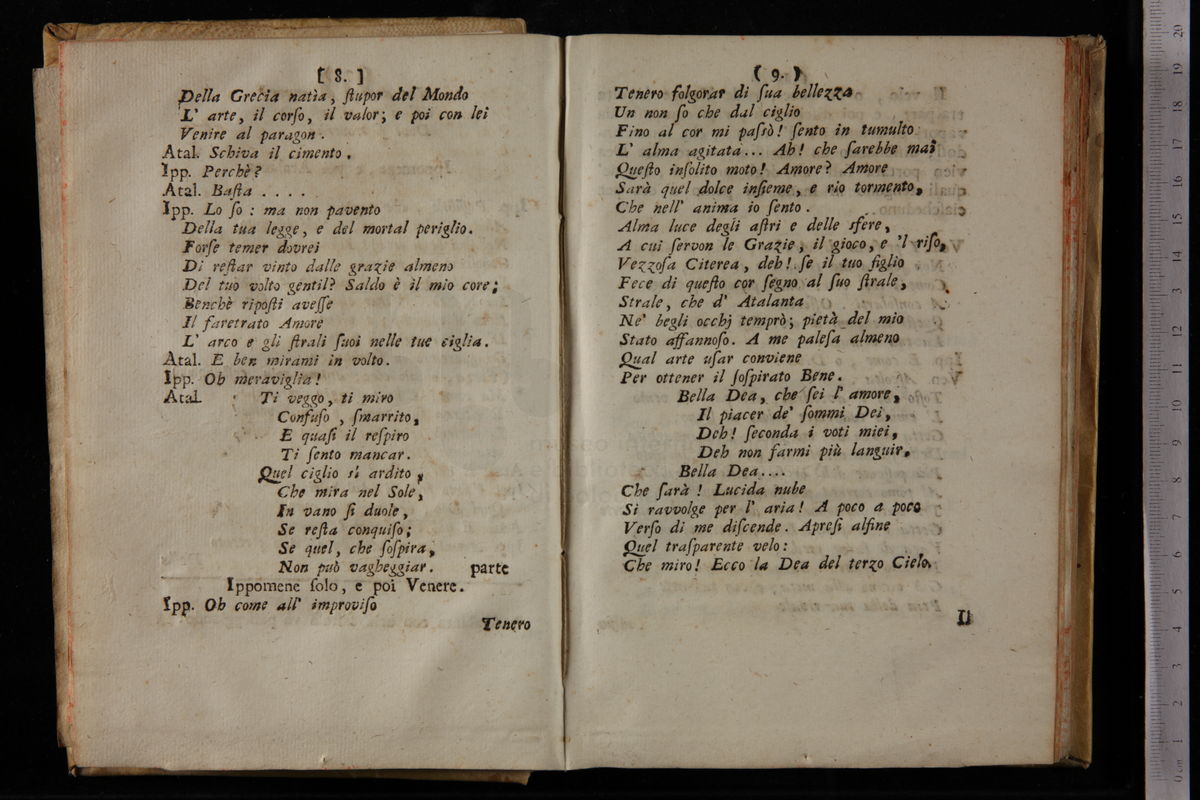 [ 8. ]
Della Grecia natìa, ſtupor del Mondo
L' arte, il corſo, il valor; e poi con lei
Venire al paragon.
Atal. Schiva il cimento.
Ipp. Perchè?
Atal. Baſta . . . .
Ipp. Lo ſo : ma non pavento
Della tua legge, e del mortal periglio.
Forſe temer dovrei
Di reſtar vinto dalle grazie almeno
Del tuo volto gentil? Saldo è il mio core;
Benchè ripoſti aveſſe
Il faretrato Amore
L' arco e gli ſtrali ſuoi nelle tue ciglia.
Atal. E ben mirami in volto.
Ipp. Oh meraviglia!
Atal. Ti veggo, ti miro
Confuſo , ſmarrito,
E quaſi il reſpiro
Ti ſento mancar.
Quel ciglio sì ardito,
Che mira nel Sole,
In vano ſi duole,
Se reſta conquiſo;
Se quel, che ſoſpira,
Non può vagheggiar. parte
Ippomene ſolo, e poi Venere.
Ipp. Oh come all' improviſo
Tenero
( 9. )
Tenero folgorar di ſua bellezza
Un non ſo che dal ciglio
Fino al cor mi paſsò! ſento in tumulto
L' alma agitata... Ah! che ſarebbe mai
Queſto inſolito moto! Amore? Amore
Sarà quel dolce inſieme, e rio tormento,
Che nell' anima io ſento.
Alma luce degli aſtri e delle sfere,
A cui ſervon le Grazie, il gioco, e 'l riſo,
Vezzoſa Citerea, deh! ſe il tuo figlio
Fece di queſto cor ſegno al ſuo ſtrale,
Strale, che d' Atalanta
Ne' begli occhj temprò; pietà del mio
Stato affannoſo. A me paleſa almeno
Qual arte uſar conviene
Per ottener il ſoſpirato Bene.
Bella Dea, che ſei l' amore,
Il piacer de' ſommi Dei,
Deh! ſeconda i voti miei,
Deh non farmi più languir.
Bella Dea....
Che ſarà ! Lucida nube
Si ravvolge per l' aria! A poco a poco
Verſo di me diſcende. Apreſi alfine
Quel traſparente velo:
Che miro! Ecco la Dea del terzo Cielo.
Il